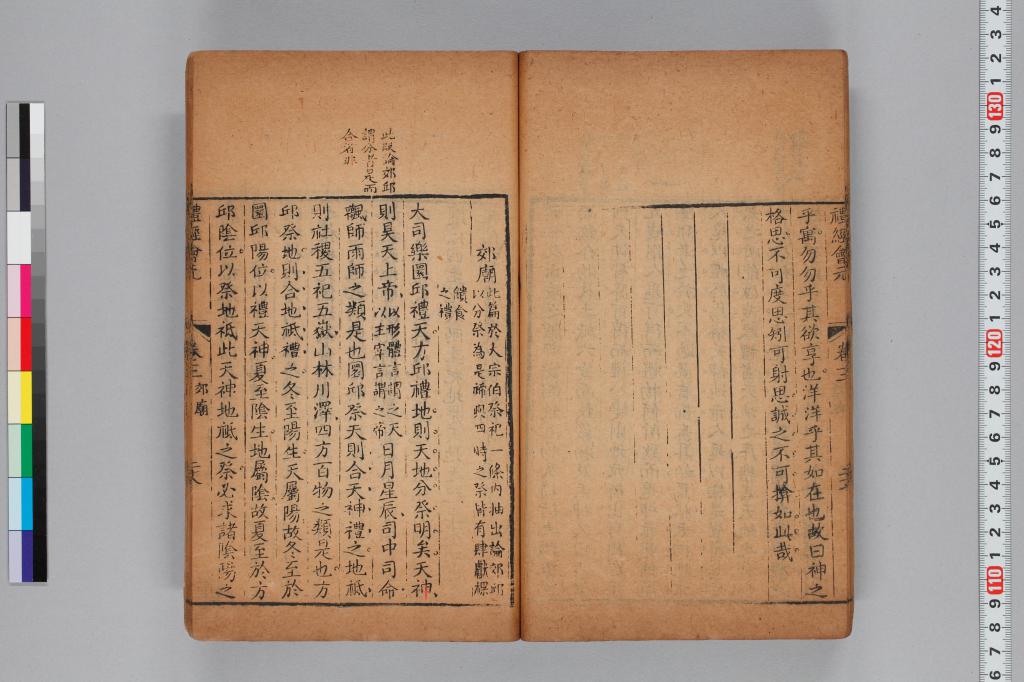 禮經會元
卷三
乎寓勿勿乎其欲享也洋洋乎其如在也故曰神之
格思不可度思矧可射思誠之不可揜如此哉
此段論郊邱
謂分者是而
合者非
郊廟
此篇於大宗伯祭祀一條内抽出論郊邱
以分祭為是禘與四時之祭皆有肆獻祼
饋食
之禮
大司樂圜邱禮天方邱禮地則天地分祭明矣天神
則昊天上帝以形體言謂之天以主宰言謂之帝日月星辰司中司命
飌師雨師之類是也圜邱祭天則合天神禮之地祗
則社稷五祀五嶽山林川澤四方百物之類是也方
邱祭地則合地祗禮之冬至陽生天屬陽故冬至於
圜邱陽位以禮天神夏至陰生地屬陰故夏至於方
邱陰位以祭地祗此天神地祗之祭必求諸陰陽之
禮經會元
卷三
郊廟